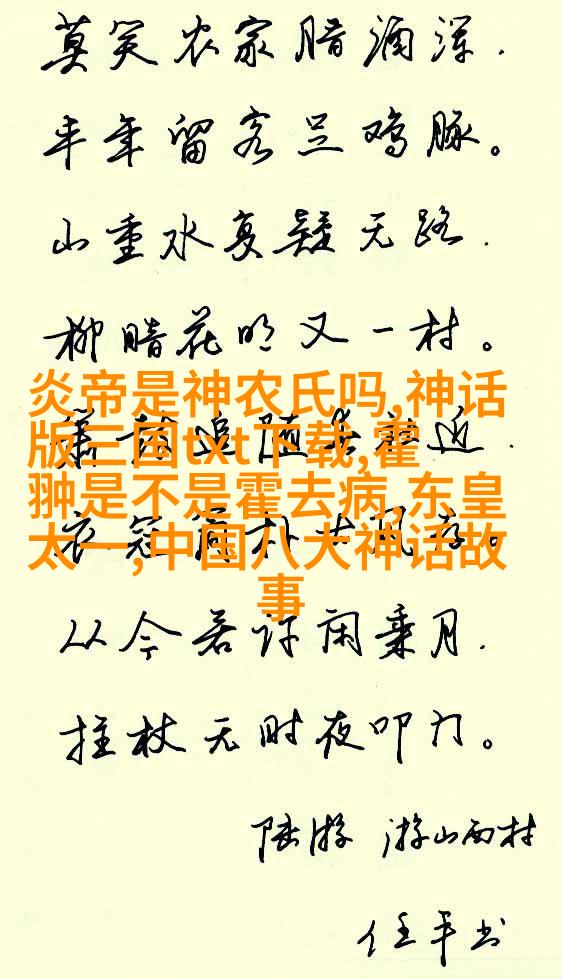 莫笑农家腊酒浑.
丰年留客足鸡豚。
山重水复疑无路.
柳暗花明又一村。
炎帝是神农氏吗,神话
版三国txt下载,霍
翀是不是霍去病,东皇
太一,中国八大神话故
事
箫鼓追随春社近.
衣冠简朴古风存。
从今若许闲乘月.
拄杖无时夜叩门。
陆游 游山西村
任平书